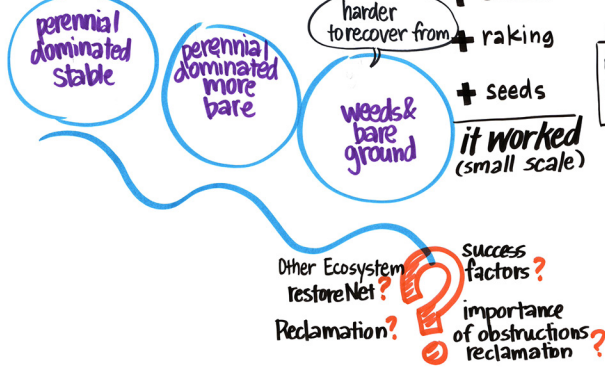 perennial
dominated
stable
perennial
dominated
more
bare
harder
to recover from
weeds &
bare
ground
+ raking
+ seeds
it worked
(small scale)
Other Ecosystem
restoreNet?
Reclamation?
?
success
factors?
importance
of obstructions
reclamation?